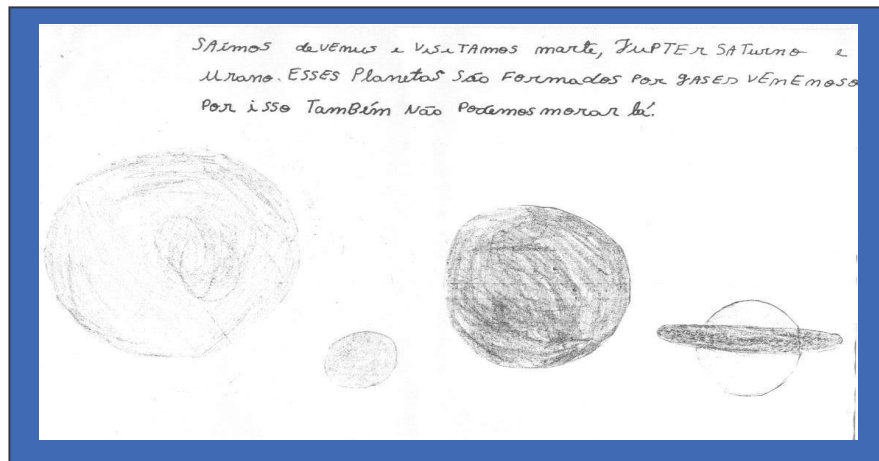 SAímos de VEnus e VisiTAmos marte, JuPTEr SATurno e
Urano. ESSES Planetas São Formados Por gASES VEnEnoso
Por isso TamBém Não Podemos morar lá.